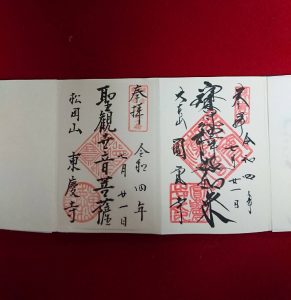 奉拝 令和四年
七月廿一日
寶冠釋迦如来
大本山 圓覚寺
奉拝
令和四年
七月廿一日
聖観世音菩薩
松岡山 東慶寺